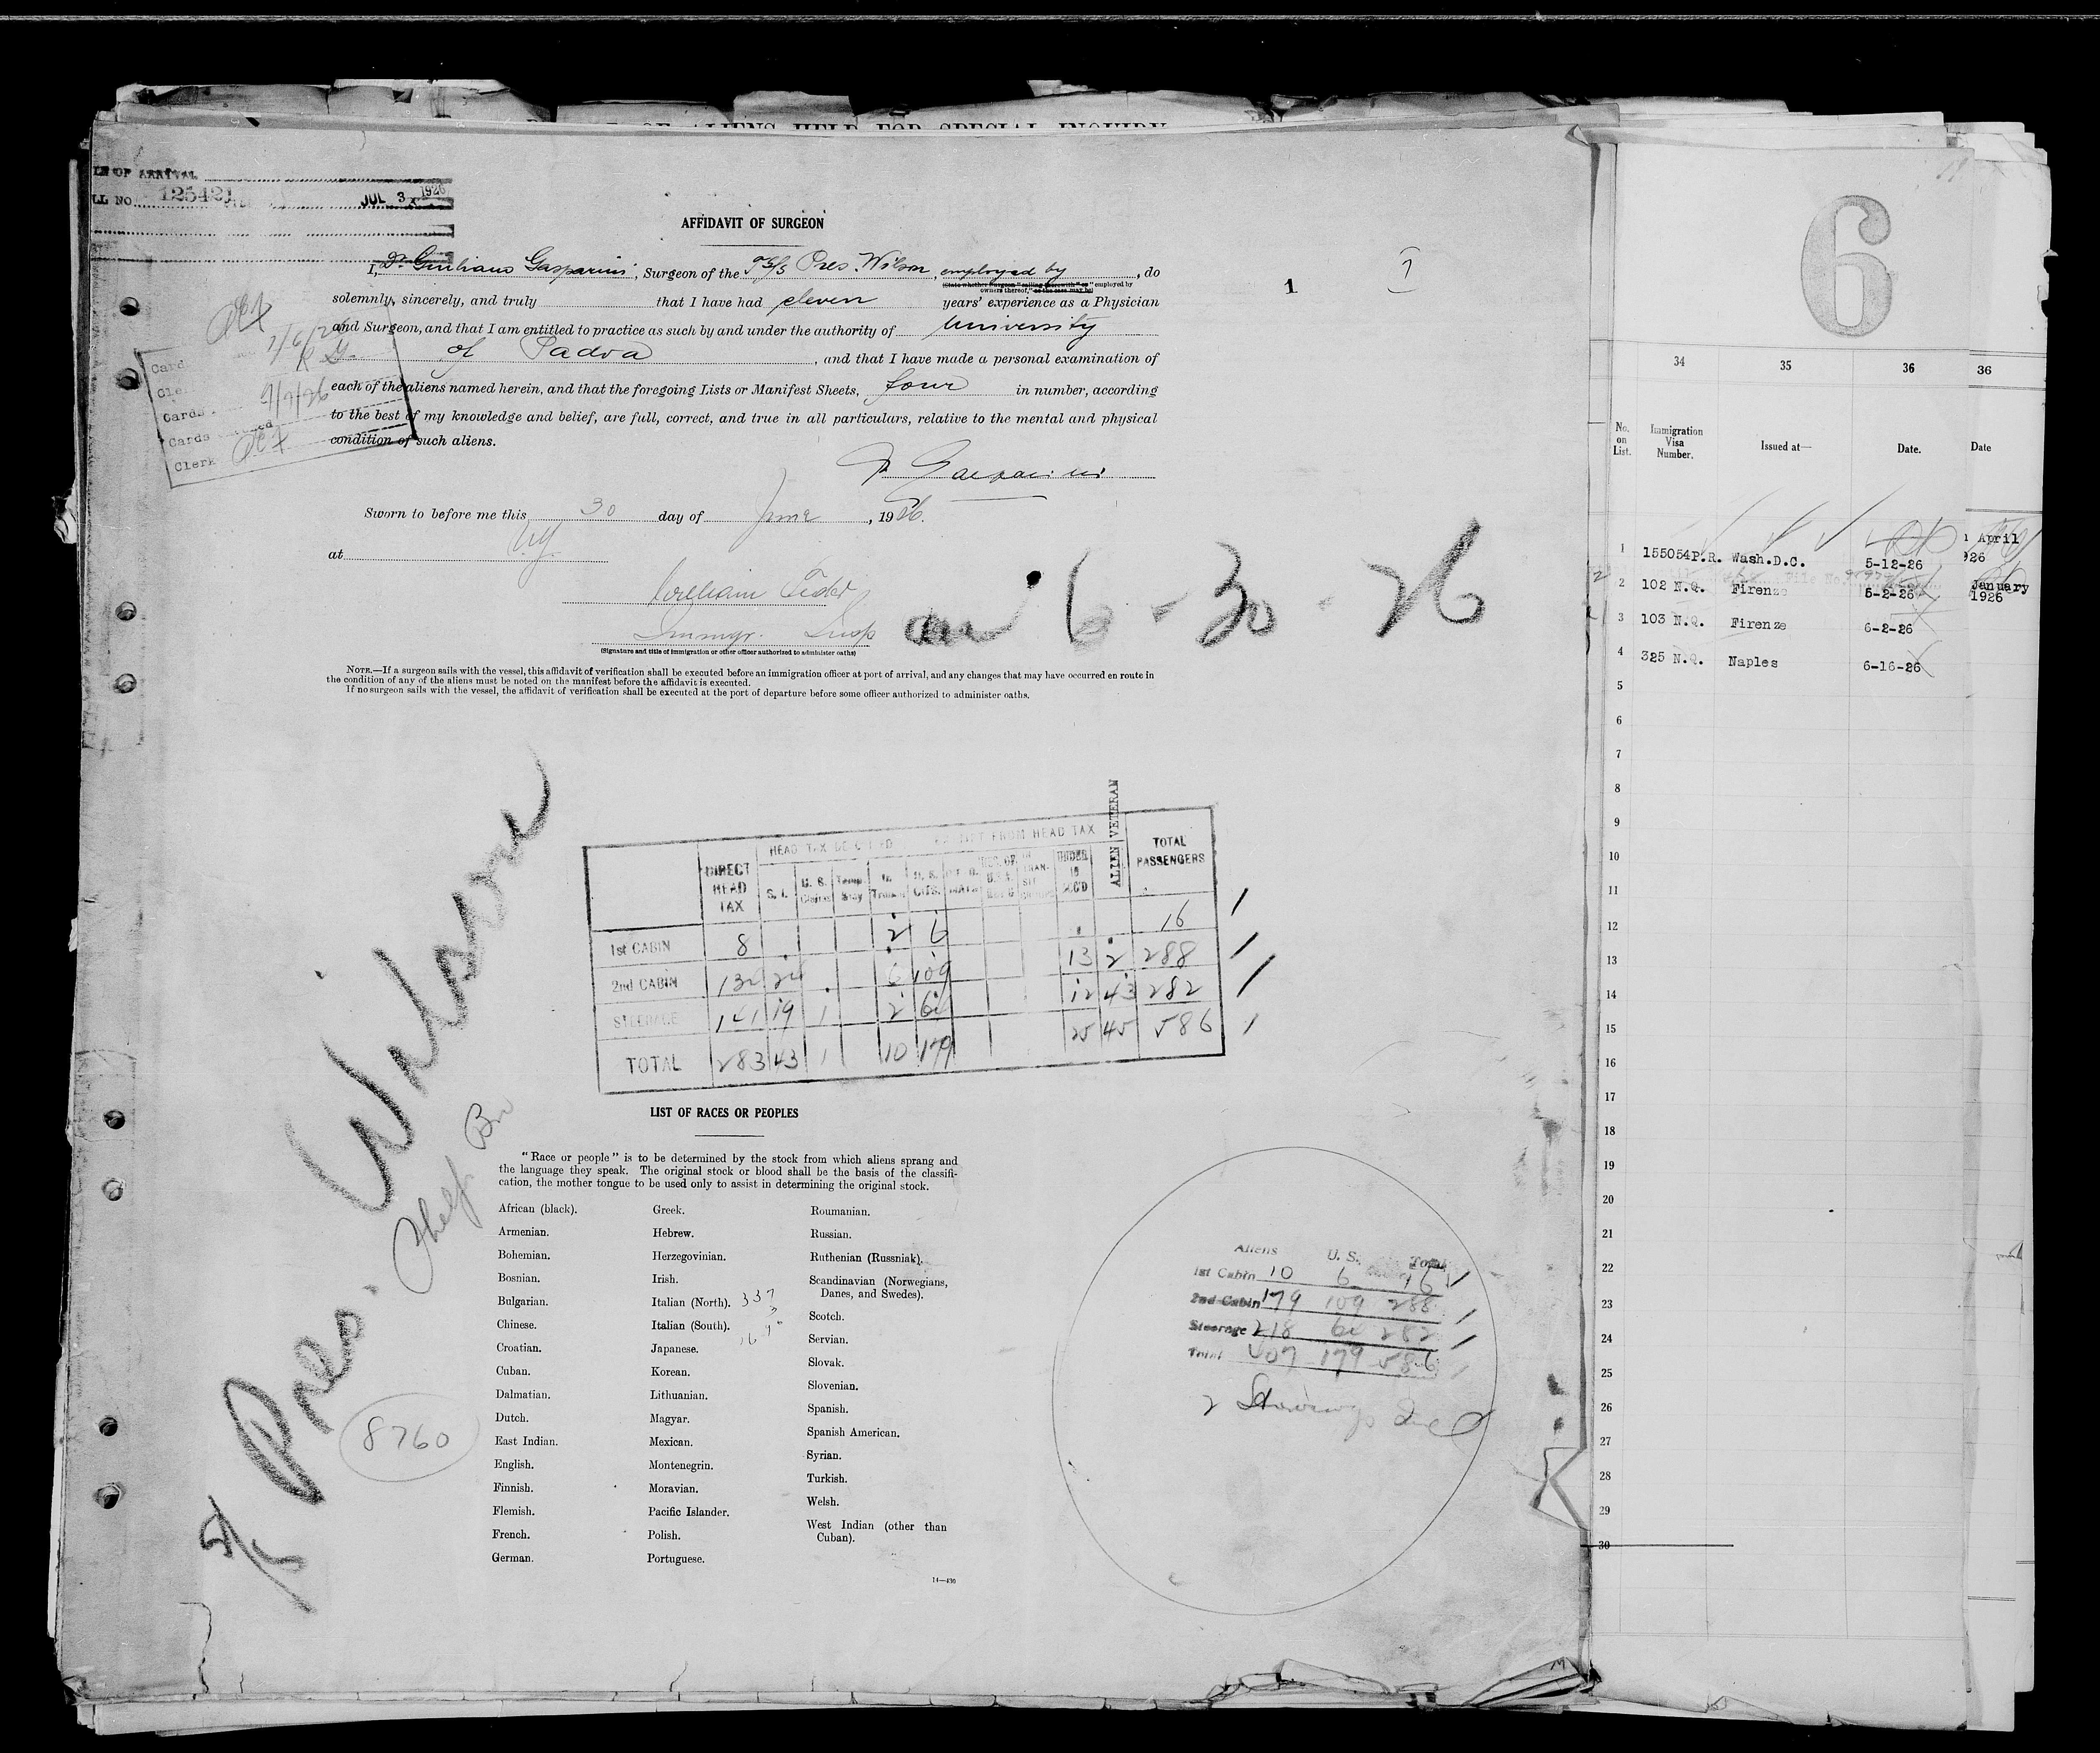 OF ALIENS HELD FOR SPECIAL INQUIRY
OF ARRIVAL
LL NO. 125421 JUL 3 1926
AFFIDAVIT OF SURGEON
I, Dr. Giuliano Gasparini, Surgeon of the S/S Pres. Wilson, employed by, do
(State whether Surgeon "sailing therewith" or "employed by
owners thereof," as the case may be)
solemnly, sincerely, and truly that I have had eleven years' experience as a Physician
and Surgeon, and that I am entitled to practice as such by and under the authority of University
of Padva, and that I have made a personal examination of
each of the aliens named herein, and that the foregoing Lists or Manifest Sheets, four in number, according
to the best of my knowledge and belief, are full, correct, and true in all particulars, relative to the mental and physical
condition of such aliens.
Card
Cards
Cards
Clerk
Gasparini
Sworn to before me this 30 day of June, 1926.
at NY
William
Immgr. Insp
(Signature and title of immigration or other officer authorized to administer oaths)
6-30-26
NOTE.—If a surgeon sails with the vessel, this affidavit of verification shall be executed before an immigration officer at port of arrival, and any changes that may have occurred en route in
the condition of any of the aliens must be noted on the manifest before the affidavit is executed.
If no surgeon sails with the vessel, the affidavit of verification shall be executed at the port of departure before some officer authorized to administer oaths.
1
Pres. Wilson
8760
DIRECT HEAD TAX
HEAD TAX
EXEMPT FROM HEAD TAX
S. I.
U. S.
In
U. S. CITS.
UNDER 16 ACC'D
ALIEN VETERAN
TOTAL PASSENGERS
1st CABIN 8 2 6 16
2nd CABIN 132 24 6 109 13 2 288
STEERAGE 141 19 1 2 64 12 43 282
TOTAL 283 43 1 10 179 25 45 586
LIST OF RACES OR PEOPLES
"Race or people" is to be determined by the stock from which aliens sprang and
the language they speak. The original stock or blood shall be the basis of the classifi-
cation, the mother tongue to be used only to assist in determining the original stock.
African (black).
Armenian.
Bohemian.
Bosnian.
Bulgarian.
Chinese.
Croatian.
Cuban.
Dalmatian.
Dutch.
East Indian.
English.
Finnish.
Flemish.
French.
German.
Greek.
Hebrew.
Herzegovinian.
Irish.
Italian (North). 337
Italian (South).
Japanese.
Korean.
Lithuanian.
Magyar.
Mexican.
Montenegrin.
Moravian.
Pacific Islander.
Polish.
Portuguese.
Roumanian.
Russian.
Ruthenian (Russniak).
Scandinavian (Norwegians,
Danes, and Swedes).
Scotch.
Servian.
Slovak.
Slovenian.
Spanish.
Spanish American.
Syrian.
Turkish.
Welsh.
West Indian (other than
Cuban).
14—430
Aliens U. S. Total
1st Cabin 10 6 16
2nd Cabin 179 109 288
Steerage 218 64 282
Total 407 179 586
6
34 35 36 36
No. on List.
Immigration Visa Number.
Issued at—
Date.
Date
1 155054P.R. Wash.D.C. 5-12-26 April
926
2 102 N.Q. Firenze 6-2-26 January
1926
3 103 N.Q. Firenze 6-2-26
4 325 N.Q. Naples 6-16-26
5
6
7
8
9
10
11
12
13
14
15
16
17
18
19
20
21
22
23
24
25
26
27
28
29
30